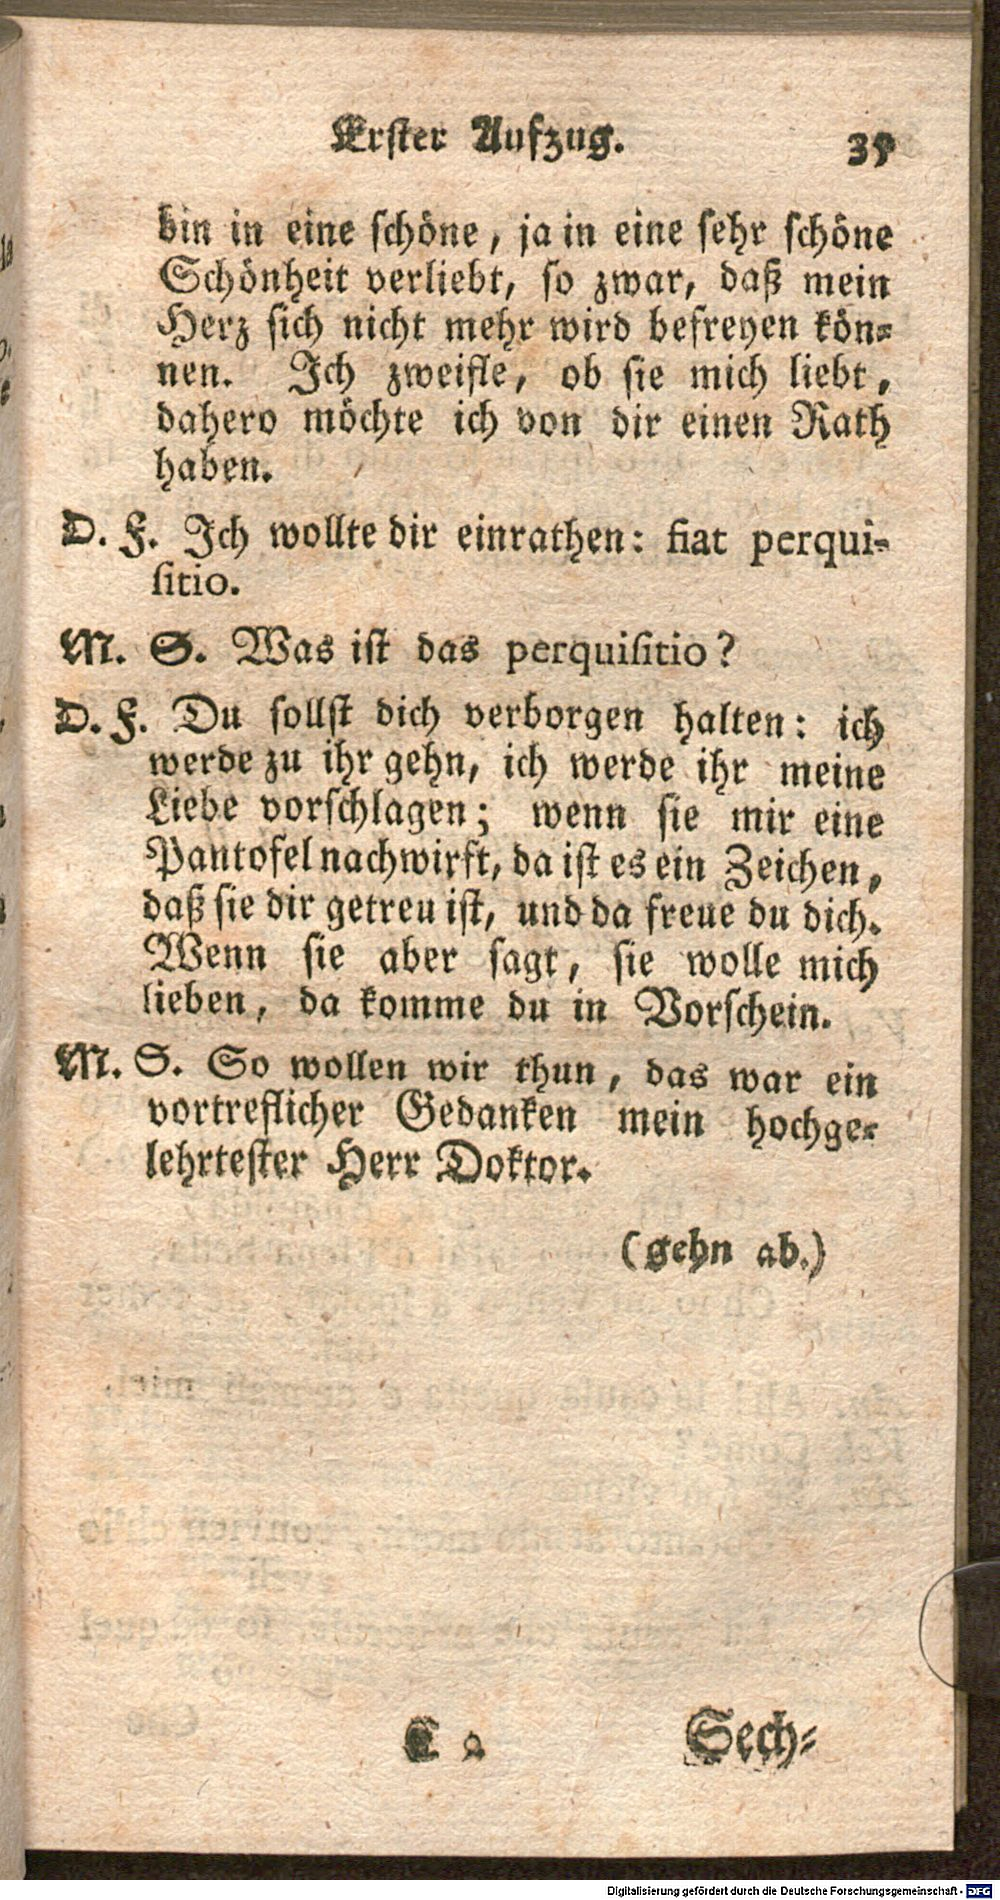 Erster Aufzug. 35
bin in eine schöne, ja in eine sehr schöne
Schönheit verliebt, so zwar, daß mein
Herz sich nicht mehr wird befreyen kön-
nen. Ich zweifle, ob sie mich liebt,
dahero möchte ich von dir einen Rath
haben.
D. F. Ich wollte dir einrathen: fiat perqui-
sitio.
M. S. Was ist das perquisitio?
D. F. Du sollst dich verborgen halten: ich
werde zu ihr gehn, ich werde ihr meine
Liebe vorschlagen; wenn sie mir eine
Pantofel nachwirft, da ist es ein Zeichen,
daß sie dir getreu ist, und da freue du dich.
Wenn sie aber sagt, sie wolle mich
lieben, da komme du in Vorschein.
M. S. So wollen wir thun, das war ein
vortreflicher Gedanken mein hochge-
lehrtester Herr Doktor.
(gehn ab.)
C 2 Sech-
Digitalisierung gefördert durch die Deutsche Forschungsgemeinschaft - DFG